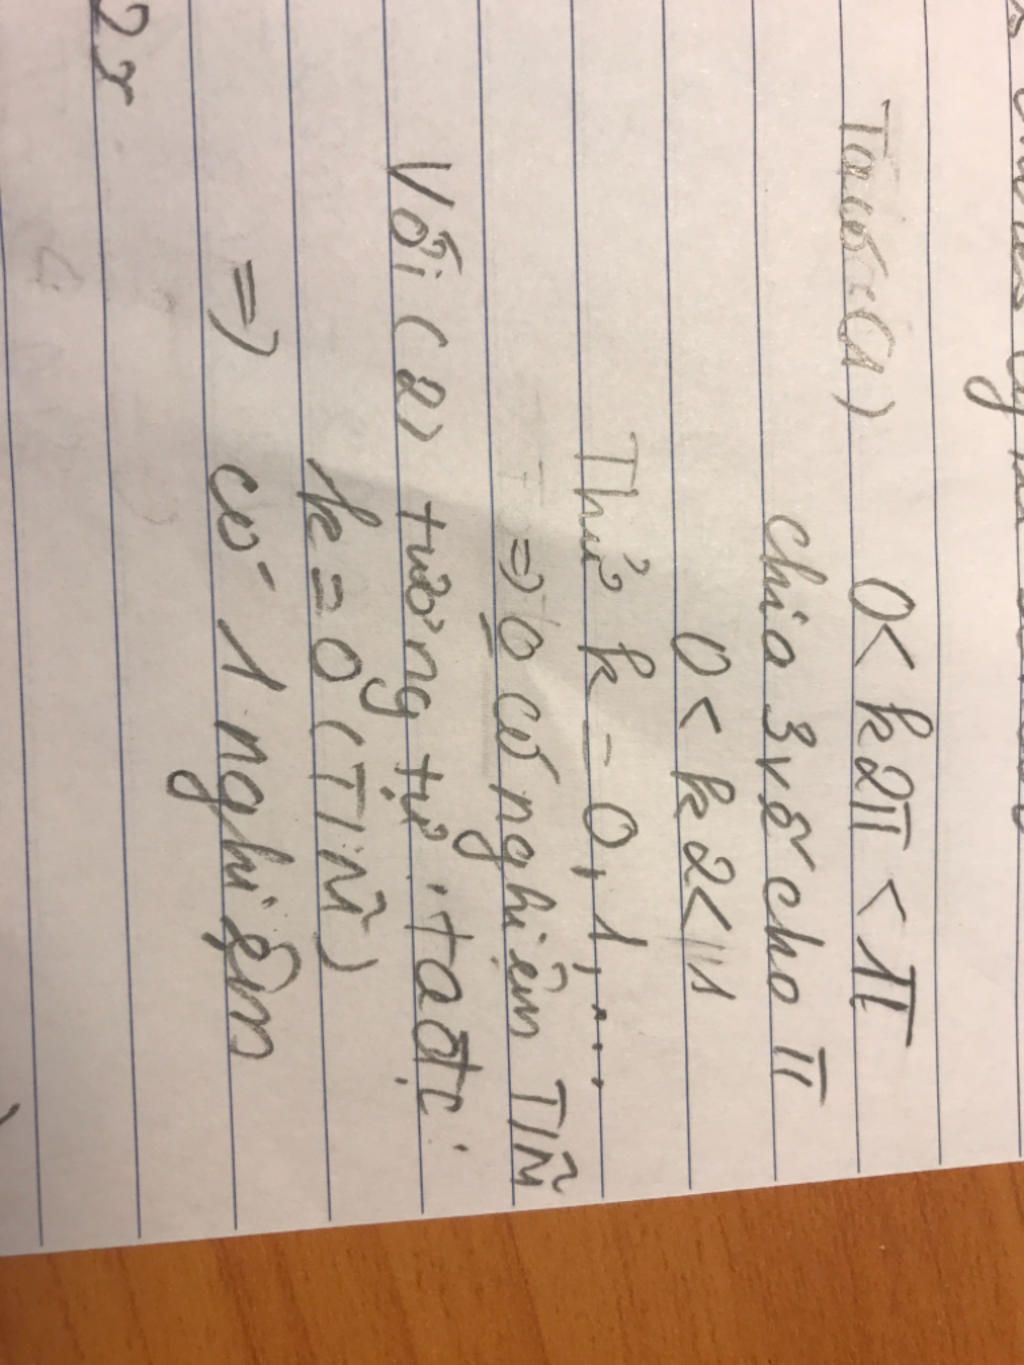 Ta có: (1) 0 < k2π < π
chia 3 vế cho π
0 < k2 < 1
Thử k = 0, 1, ...
=> 0 có nghiệm TM
Với (2) tương tự, ta đc:
k = 0 (TM)
=> có 1 nghiệm
2x